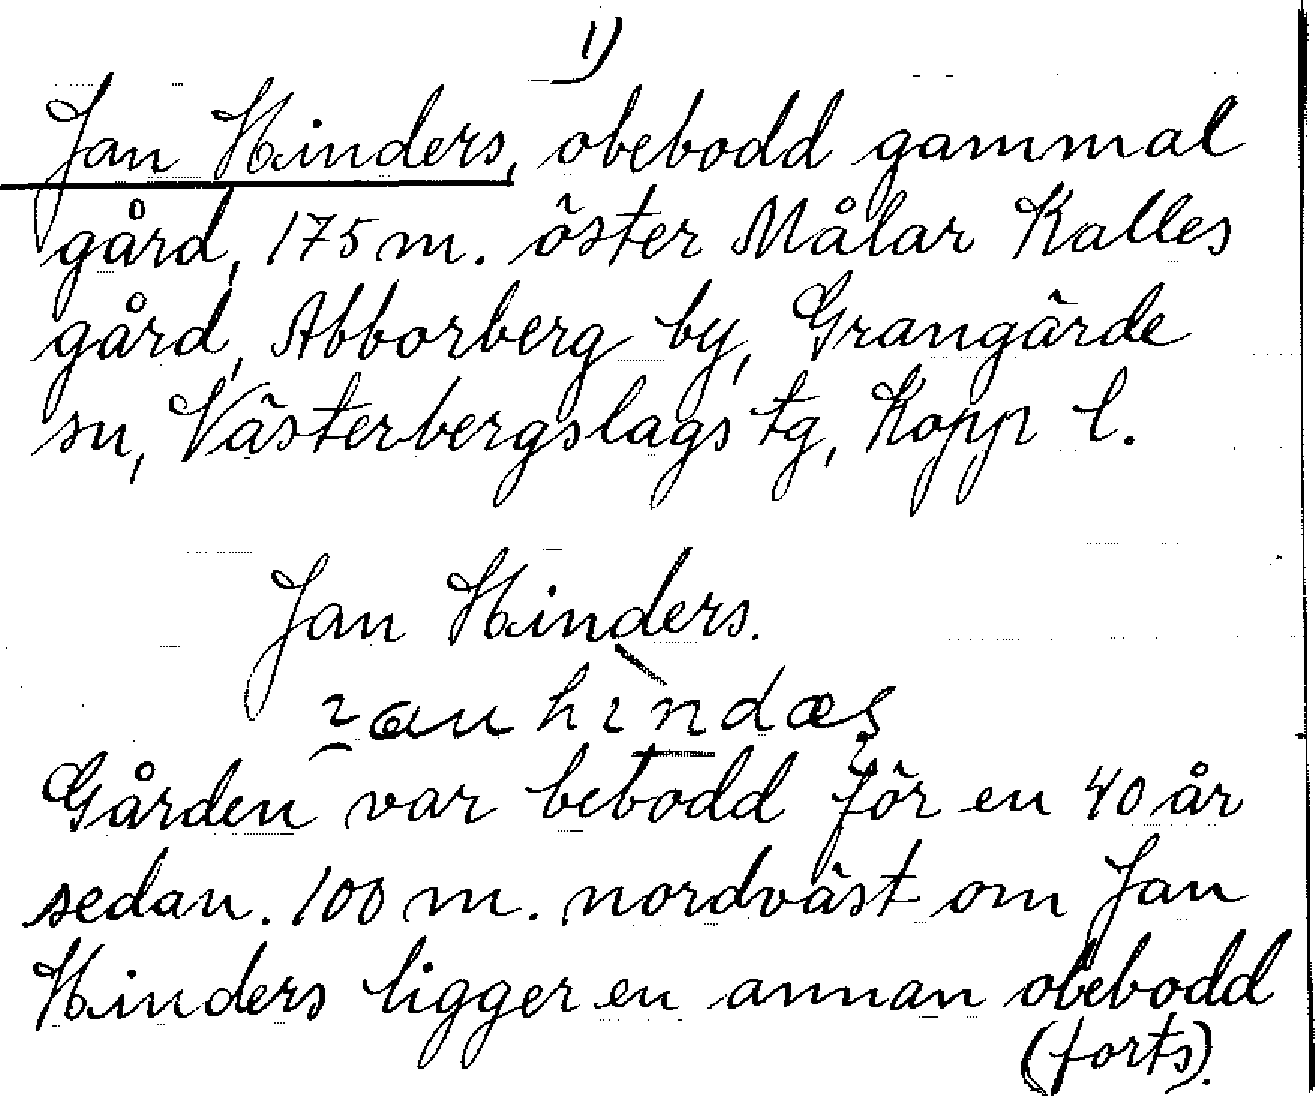 1)
Jan Hinders, obebodd gammal
gård, 175 m. öster Målar Kalles
gård, Abborberg by, Grangärde
sn, Västerbergslags tg, Kopp l.
Jan Hinders.
Gården var bebodd för en 40 år
sedan. 100 m. nordväst om Jan
Hinders ligger en annan obebodd
(forts).